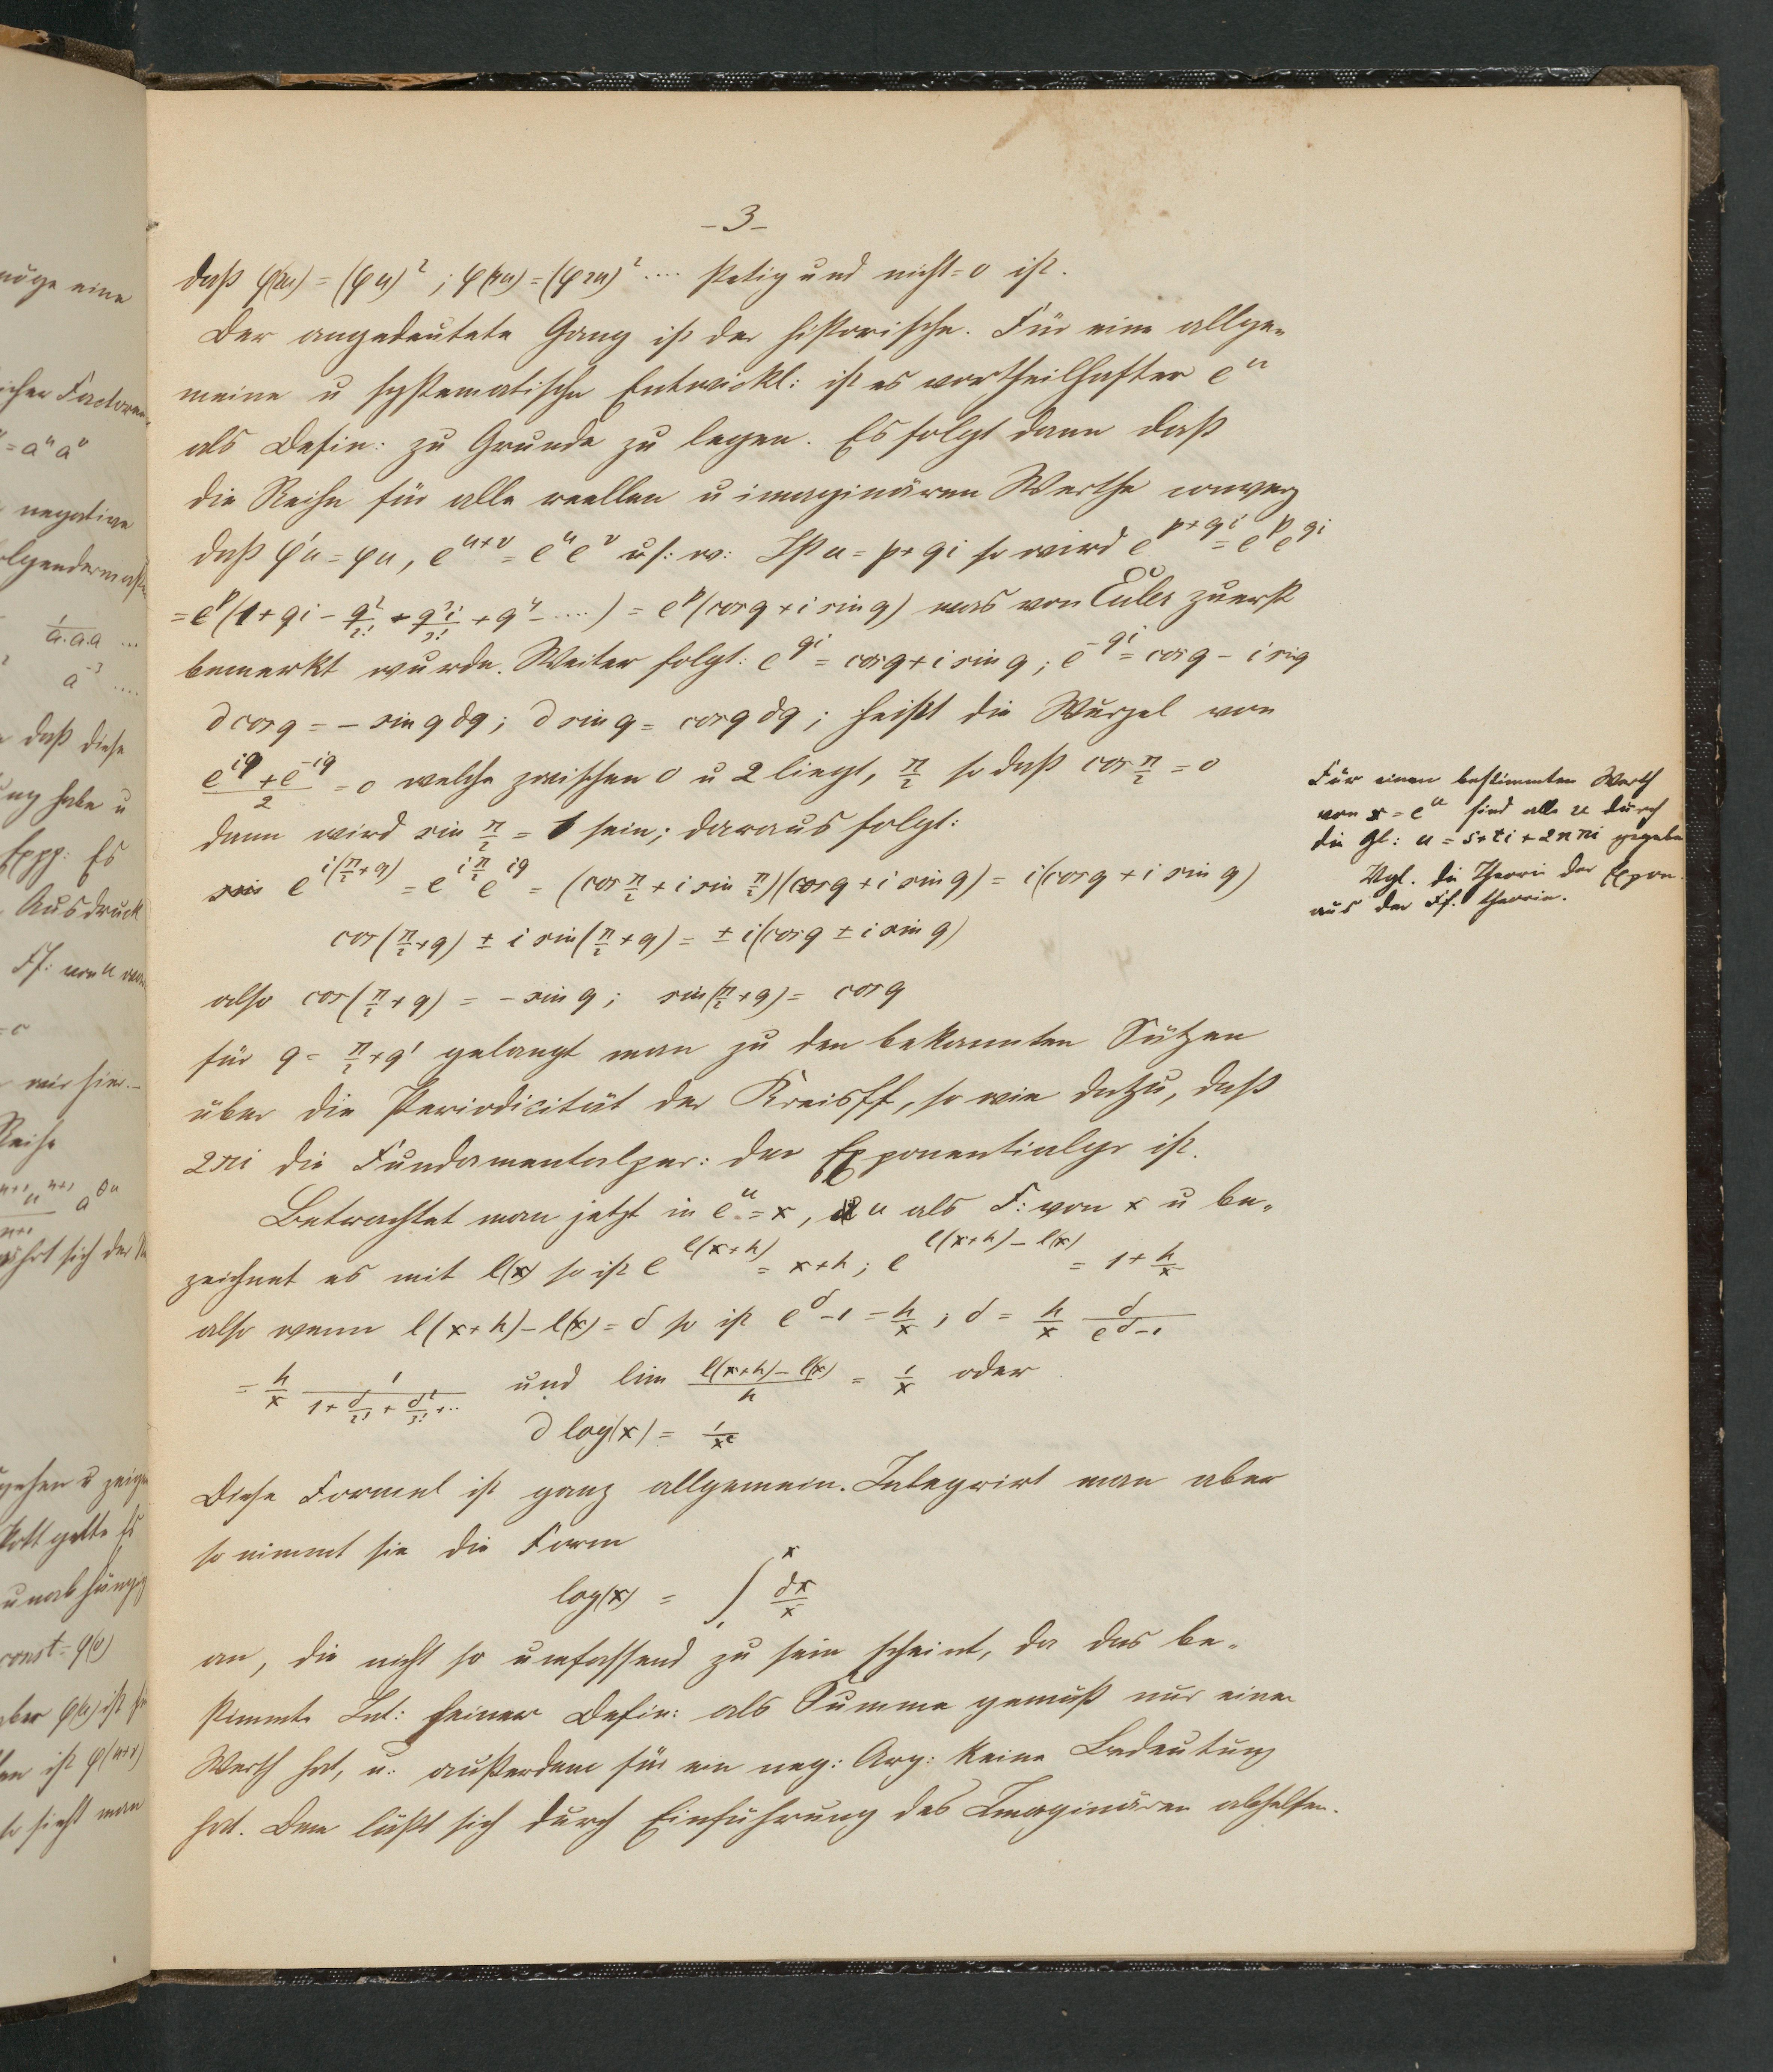 -3-
daß φ(2u) = (φu)²; φ(4u) = (φ2u)² .... stetig und nicht = 0 ist.
Der angedeutete Gang ist der historische. Für eine allge-
meine u systematische Entwickl: ist es vortheilhafter eᵘ
als Defin: zu Grunde zu legen. Es folgt dann daß
die Reihe für alle reellen u imaginären Werthe converg
daß φ'u = φu, e^{u+v} = e^u e^v u s: w: Ist u = p+qi so wird e^{p+qi} = e^p e^{qi}
= e^p (1+qi - q²/2! + q³i/3! + q⁴ - ....) = e^p (cos q + i sin q) was von Euler zuerst
bemerkt wurde. Weiter folgt: e^{qi} = cos q + i sin q; e^{-qi} = cos q - i siq
∂ cos q = - sin q ∂q; ∂ sin q = cos q ∂q; heißt die Wurzel von
(e^{iq} + e^{-iq})/2 = 0 welche zwischen 0 u 2 liegt, π/2 so daß cos π/2 = 0
dann wird sin π/2 = 1 sein; daraus folgt:
e^{i(π/2+q)} = e^{iπ/2} e^{iq} = (cos π/2 + i sin π/2)(cos q + i sin q) = i(cos q + i sin q)
cos(π/2+q) ± i sin(π/2+q) = ± i(cos q ± i sin q)
also cos(π/2+q) = - sin q; sin(π/2+q) = cos q
für q = π/2+q' gelangt man zu den bekannten Sätzen
über die Periodicität der Kreisff, so wie dazu, daß
2πi die Fundamentalper: der Exponentialgr ist.
Betrachtet man jetzt in e^u = x, u als F: von x u be-
zeichnet es mit l(x) so ist e^{l(x+h)} = x+h; e^{l(x+h)-l(x)} = 1 + h/x
also wenn l(x+h) - l(x) = δ so ist e^δ - 1 = h/x; δ = h/x δ/(e^δ-1)
= h/x 1/(1+δ/2!+δ²/3!+..) und lim (l(x+h)-l(x))/h = 1/x oder
∂ log(x) = 1/x
Diese Formel ist ganz allgemein. Integrirt man aber
so nimmt sie die Form
log(x) = ∫₁ˣ dx/x
an, die nicht so umfassend zu sein scheint, da das be-
stimmte Int: seiner Defin: als Summe gemäß nur einen
Werth hat, u: außerdem für ein neg: Arg: keine Bedeutung
hat. Dem läßt sich durch Einführung des Imaginären abhelfen.
Für einen bestimmten Werth
von x = e^u sind alle u durch
die Gl: u = s+ti+2nπi gegeben
Vgl. die Theorie der Expon.
aus der Ff. theorie.